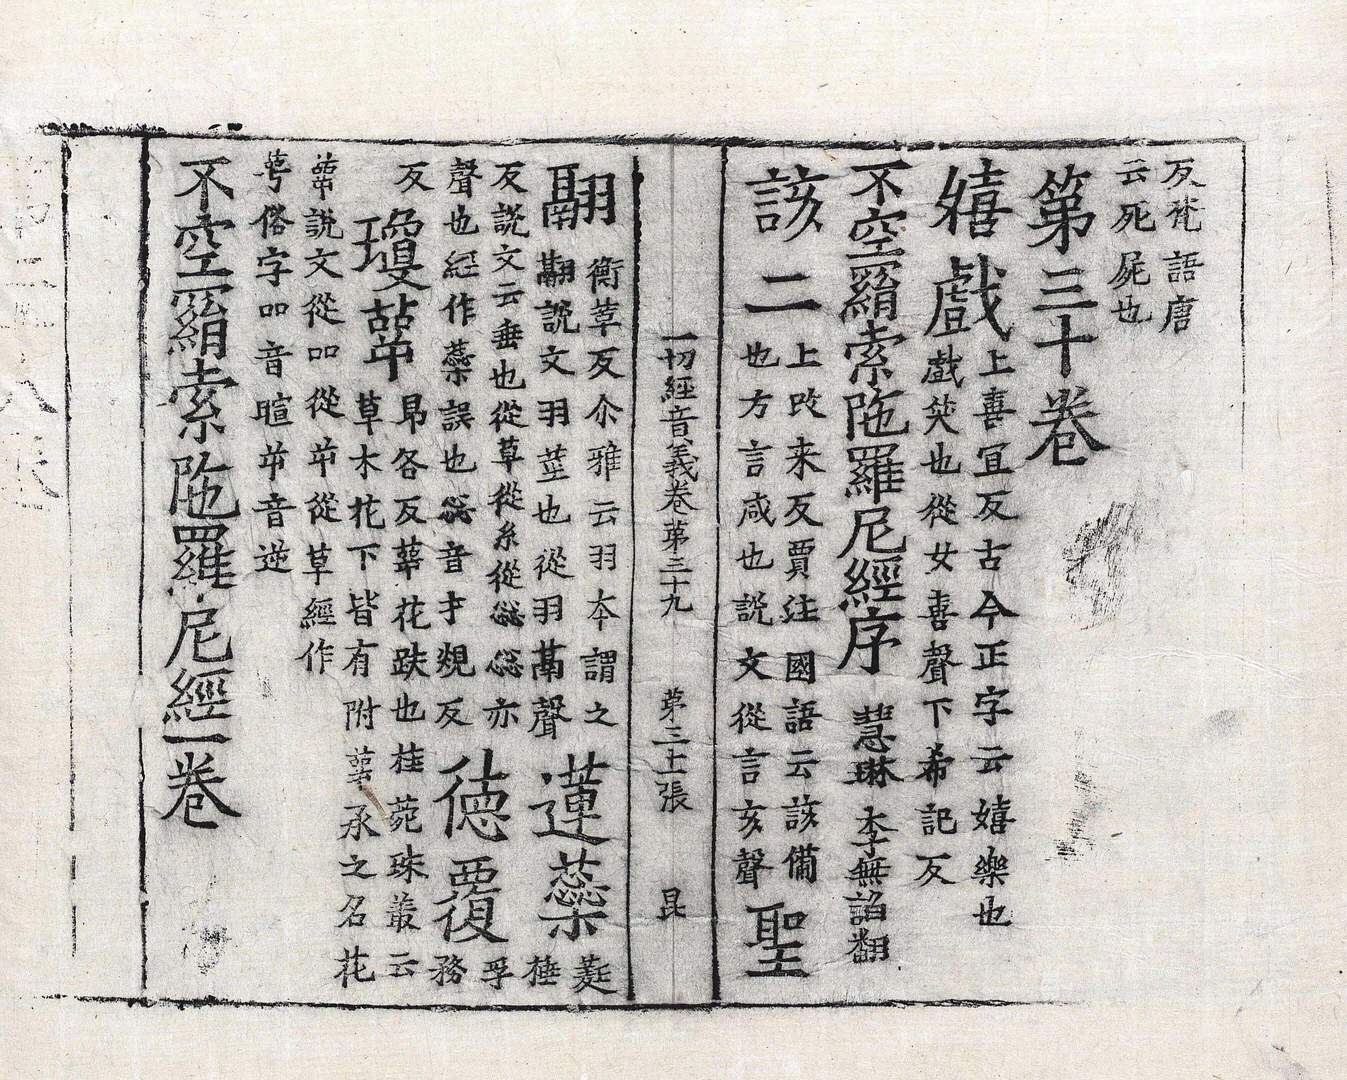 反梵語唐
云死屍也
第三十卷
嬉戲上喜宜反古今正字云嬉樂也
戲笑也從女喜聲下希記反
不空羂索陁羅尼經序慧琳李無諂翻
該二上改来反賈注國語云該備
也方言咸也説文從言亥聲聖
一切經音義卷苐三十九 苐三十張 昆
翮衡革反尒雅云羽本謂之
翮説文羽莖也從羽鬲聲蓮蘂蕤
反説文云垂也從草從糸從惢惢亦
聲也經作蘂誤也惢音才規反德覆孚
務
反瓊蕚昂各反萼花趺也桂菀珠叢云
草木花下皆有附萼承之名花
萼說文從吅從屰從草經作
萼俗字吅音暄屰音逆
不空羂索陁羅尼經一卷